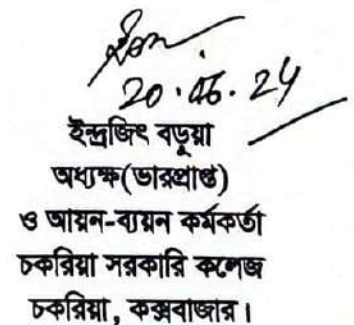 20.06.24
ইন্দ্রজিৎ বড়ুয়া
অধ্যক্ষ(ভারপ্রাপ্ত)
ও আয়ন-ব্যয়ন কর্মকর্তা
চকরিয়া সরকারি কলেজ
চকরিয়া, কক্সবাজার।